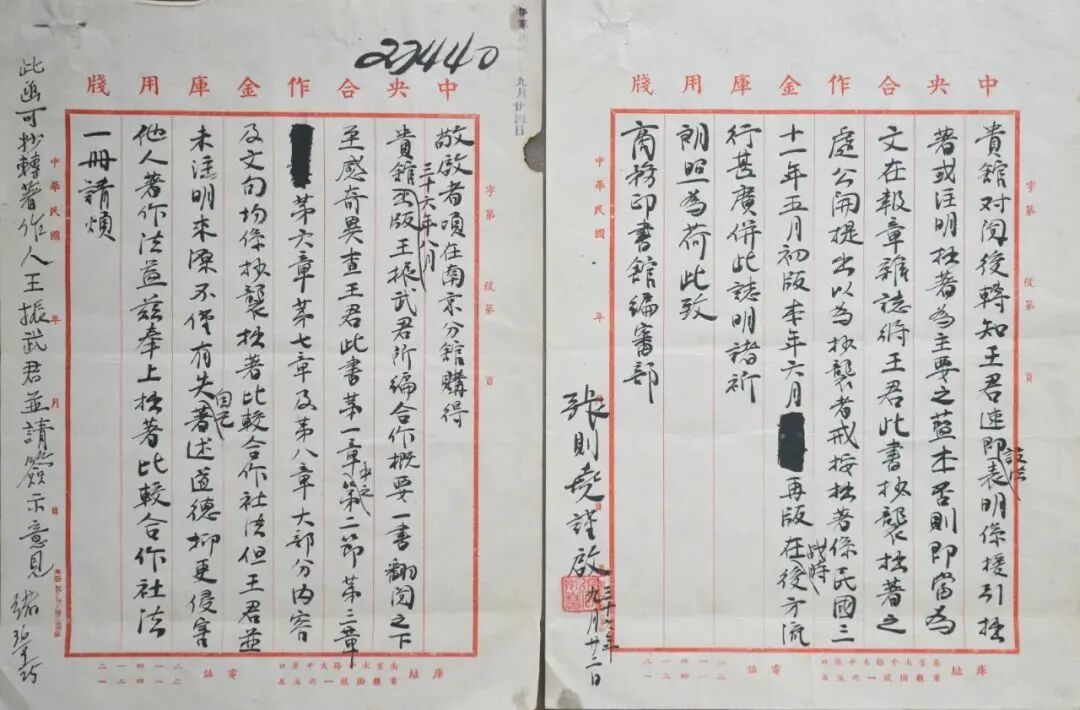 22440
九月廿四日
中央合作金庫用牋
字第 號第 頁
敬啟者頃在南京分館購得
貴館三十六年八月出版王振武君所編合作概要一書翻閱之下
至感奇異查王君此書第一章中之第二節第三章
第六章第七章及第八章大部分內容
及文句均係抄襲拙著比較合作社法但王君並
未注明來源不僅有失自己著述道德抑更侵害
他人著作法益茲奉上拙著比較合作社法
一冊請煩
中華民國 年 月 日
此函可抄轉著作人王振武君並請簽示意見
庫址
電話
中央合作金庫用牋
字第 號第 頁
貴館对閱後轉知王君速即設法表明係援引拙
著或注明拙著為主要之藍本否則即當為
文在報章雜誌將王君此書抄襲拙著之
處公開提出以為抄襲者戒按拙著係民國三
十一年五月初版本年六月再版战時在後方流
行甚廣併此誌明諸祈
朗照為荷此致
商務印書館編審部
張則堯謹啟
三十六年九月廿二日
中華民國 年
庫址
電話